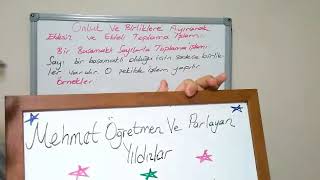 Onluk Ve Birliklere Ayırarak
Eldesiz ve Eldeli Toplama İşlemi
Bir Basamaklı Sayılarla Toplama işlemi
Sayı bir basamaklı olduğu için sadece birlik-
ler vardır. O şekilde işlem yapılır
Örnekler
Mehmet Öğretmen Ve Parlayan
Yıldızlar